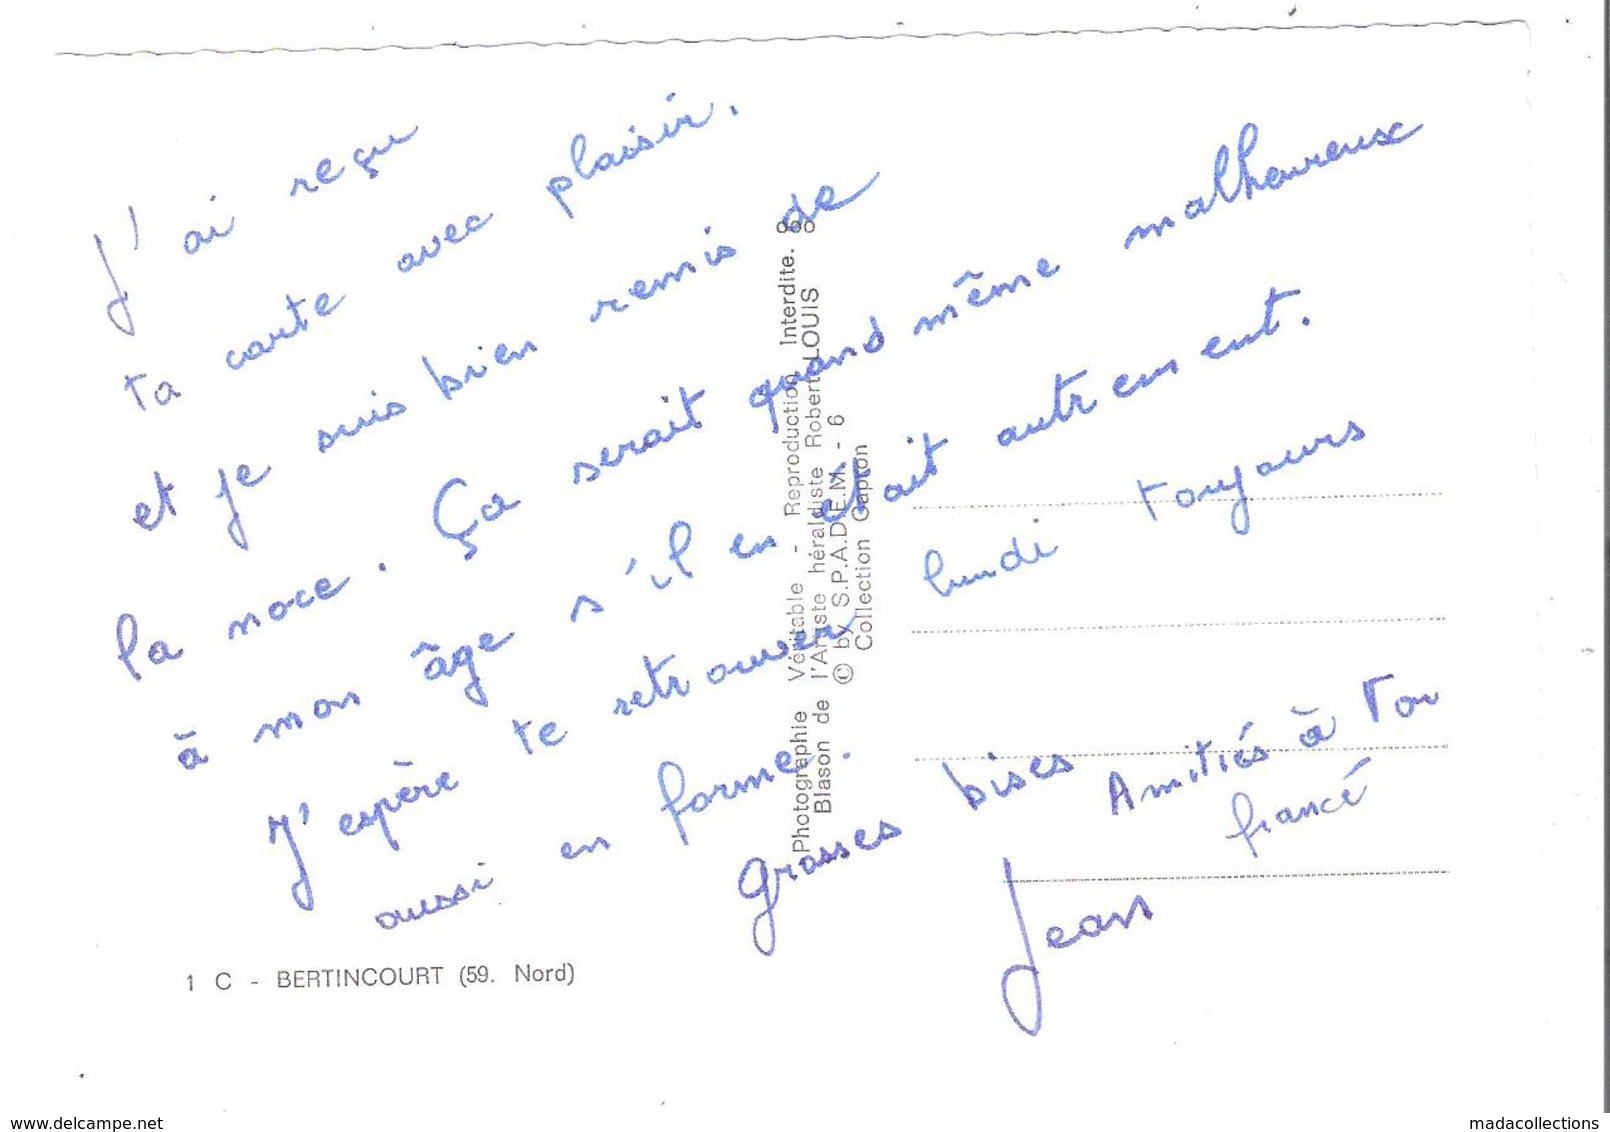 J'ai reçu
ta carte avec plaisir.
et je suis bien remis de
la noce. Ça serait quand même malheureux
à mon âge s'il en était autrement.
J'espère te retrouver lundi toujours
aussi en forme.
Grosses bises
Amitiés à ton
fiancé
Jean
Photographie Véritable - Reproduction Interdite.
Blason de l'Artiste héraldiste Robert LOUIS
© by S.P.A.D.E.M. - 6
Collection Gapton
1 C - BERTINCOURT (59. Nord)
www.delcampe.net
madacollections